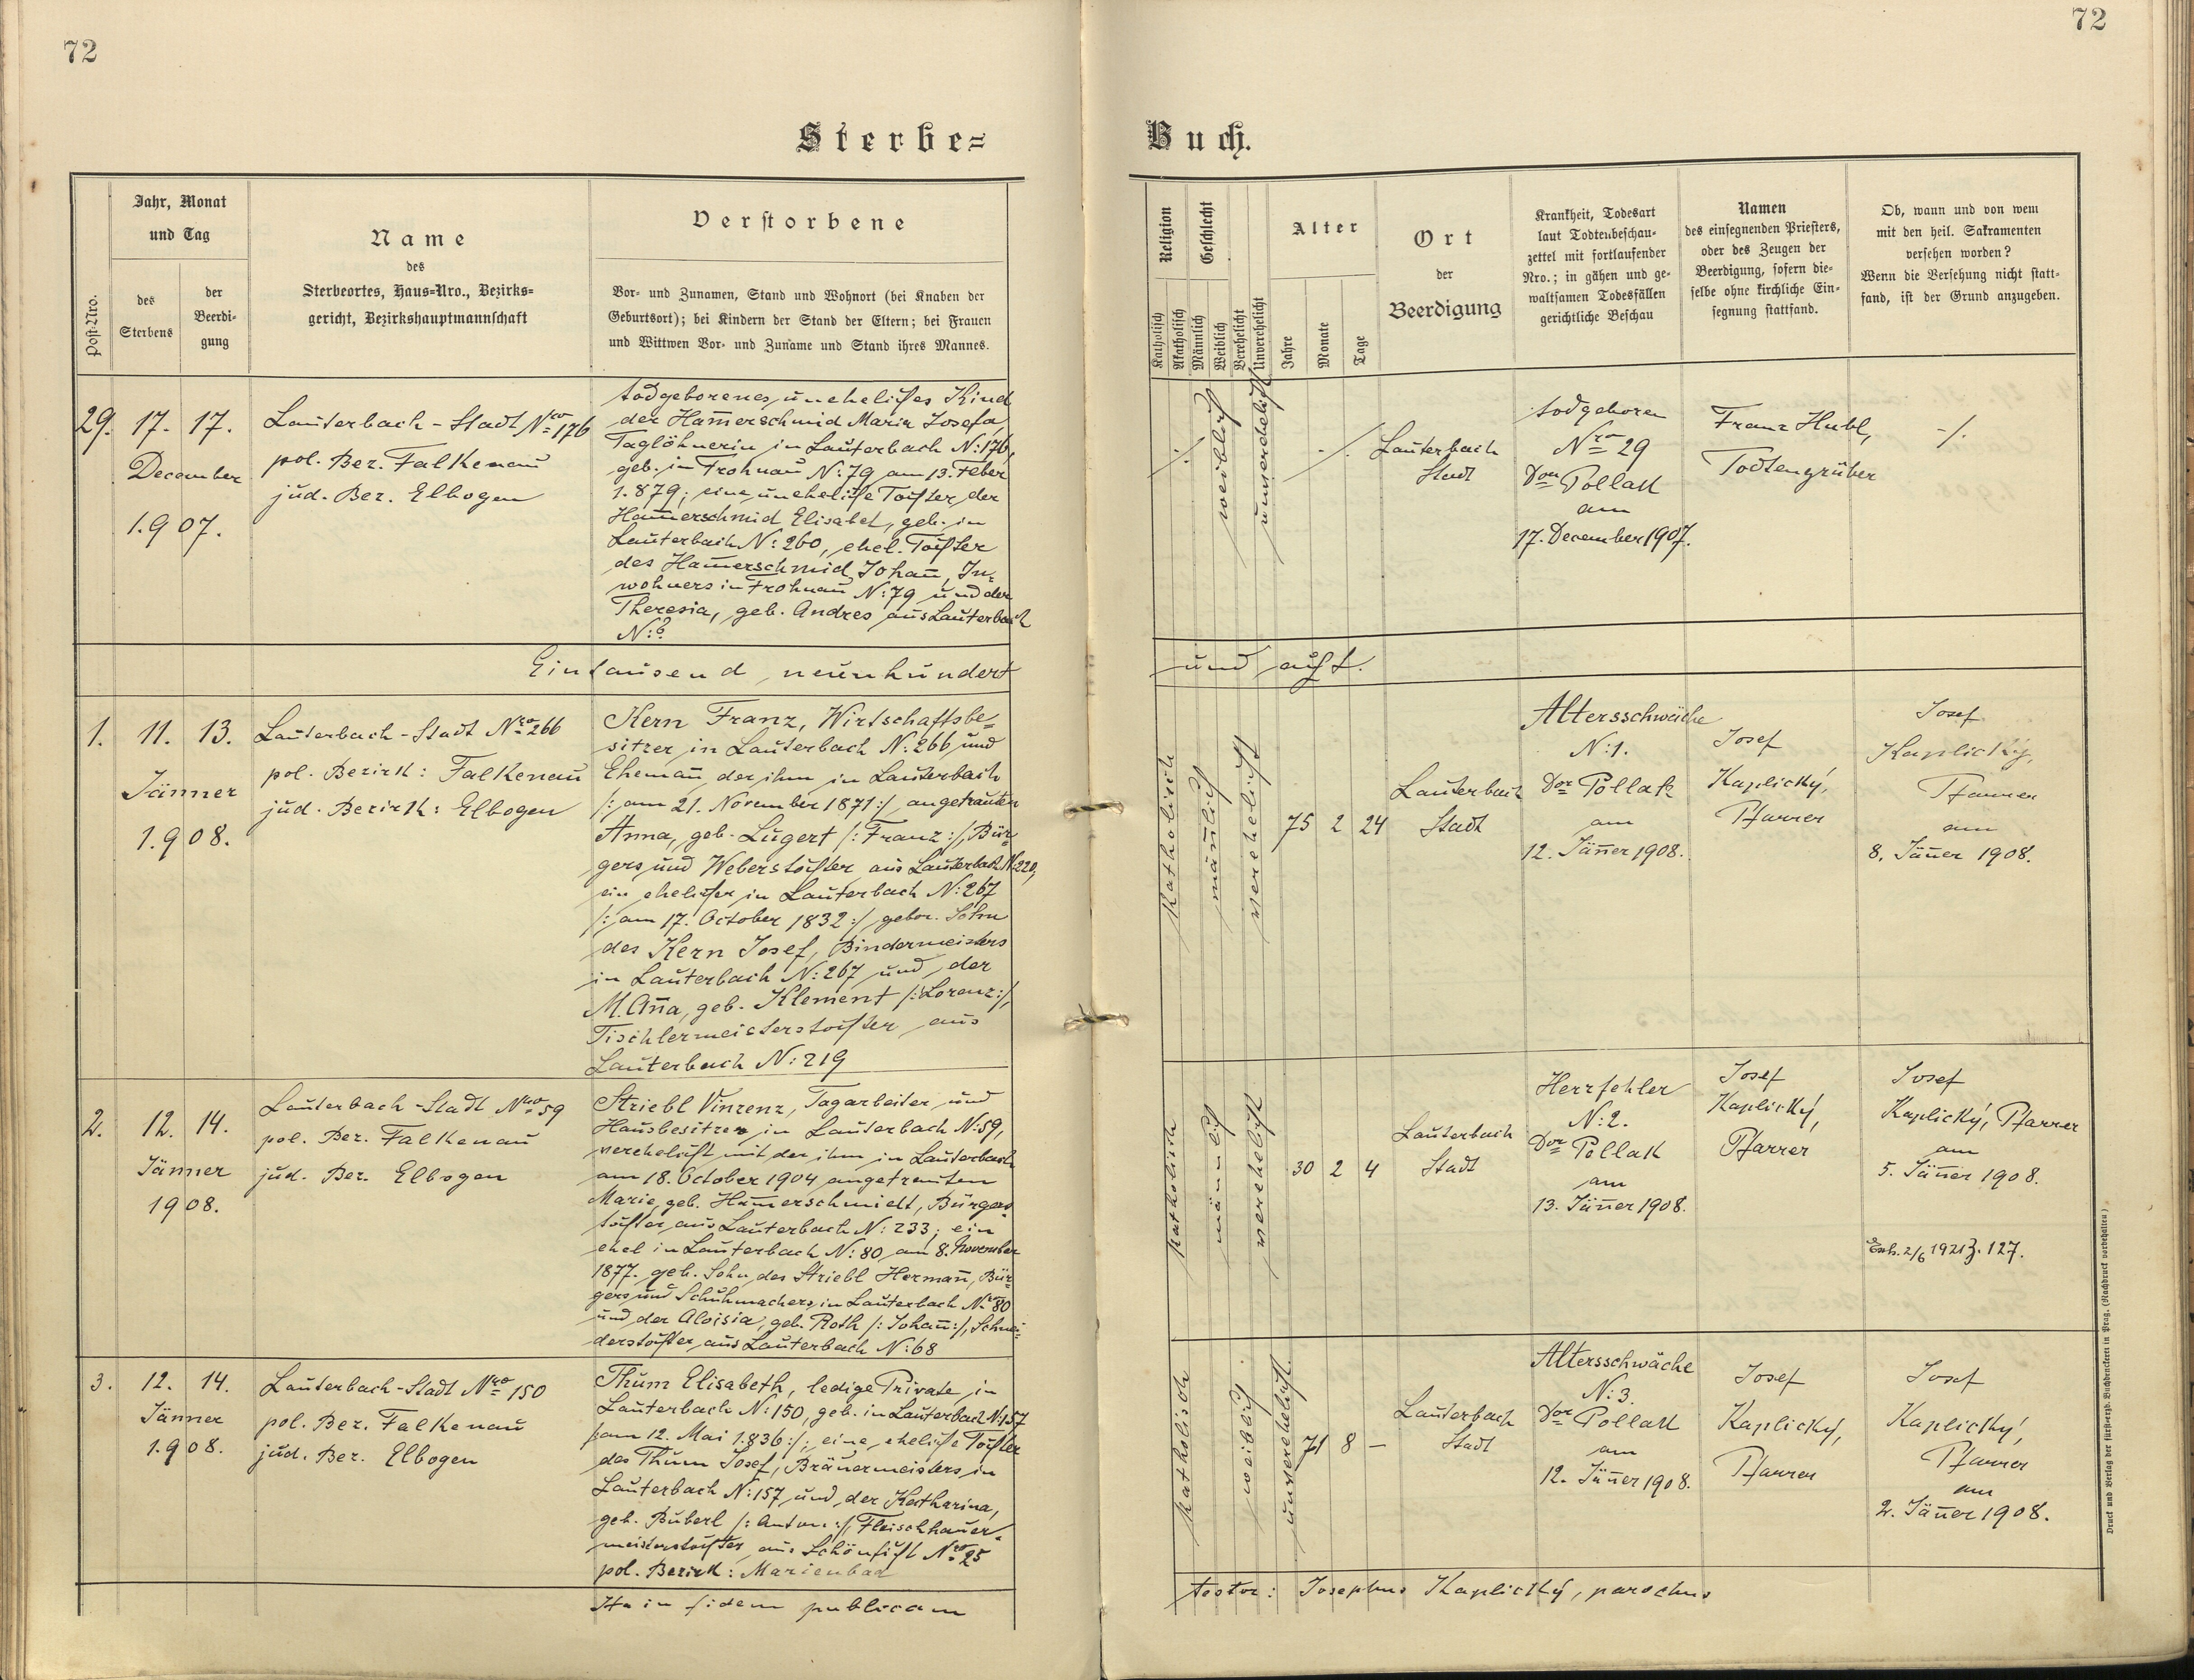 72
72
Sterbe=
Buch.
Post-Nro.
Jahr, Monat
und Tag
des
Sterbens
der
Beerdi-
gung
Name
des
Sterbeortes, Haus=Nro., Bezirks=
gericht, Bezirkshauptmannschaft
Verstorbene
Vor- und Zunamen, Stand und Wohnort (bei Knaben der
Geburtsort); bei Kindern der Stand der Eltern; bei Frauen
und Wittwen Vor- und Zuname und Stand ihres Mannes.
Religion
Katholisch
Akatholisch
Geschlecht
Männlich
Weiblich
Verehelicht
Unverehelicht
Alter
Jahre
Monate
Tage
Ort
der
Beerdigung
Krankheit, Todesart
laut Todtenbeschau-
zettel mit fortlaufender
Nro.; in gähen und ge-
waltsamen Todesfällen
gerichtliche Beschau
Namen
des einsegnenden Priesters,
oder des Zeugen der
Beerdigung, sofern die-
selbe ohne kirchliche Ein-
segnung stattfand.
Ob, wann und von wem
mit den heil. Sakramenten
versehen worden?
Wenn die Versehung nicht statt-
fand, ist der Grund anzugeben.
29. 17. 17.
December
1.907.
Lauterbach-Stadt Nro 176
pol. Bez. Falkenau
jud. Bez. Elbogen
todgeborenes, uneheliches Kind
der Ham̄erschmid Maria Josefa,
Taglöhnerin in Lauterbach N:176,
geb. in Frohnau N:79 am 13. Feber
1.879; eine uneheliche Tochter der
Ham̄erschmid Elisabet, geb. in
Lauterbach N:260, ehel. Tochter
des Ham̄erschmid Johan̄, In-
wohners in Frohnau N:79 und der
Theresia, geb. Andres aus Lauterbach
N:?
-/.
weiblich
unverehelicht
-/.
Lauterbach
Stadt
todgeboren
Nro 29
Dor Pollak
am
17. December 1907.
Franz Hubl,
Todtengräber
-/.
Eintausend neunhundert
und acht.
1. 11. 13.
Jänner
1.908.
Lauterbach-Stadt Nro 266
pol. Bezirk: Falkenau
jud. Bezirk: Elbogen
Kern Franz, Wirtschaftsbe=
sitzer in Lauterbach N:266 und
Eheman̄ der ihm in Lauterbach
/: am 21. November 1871 :/ angetrauten
Anna, geb. Lugert /: Franz :/, Bür-
gers und Weberstochter aus Lauterbach N:220,
ein ehelicher in Lauterbach N:267
/: am 17. October 1832 :/ gebor. Sohn
des Kern Josef, Bindermeisters
in Lauterbach N:267 und der
M. An̄a, geb. Klement /: Lorenz :/,
Tischlermeisterstochter aus
Lauterbach N:219
katholisch
män̄lich
verehelicht
75 2 24
Lauterbach
Stadt
Altersschwäche
N:1.
Dor Pollak
am
12. Jän̄er 1908.
Josef
Kaplický,
Pfarrer
Josef
Kaplický,
Pfarrer
am
8. Jän̄er 1908.
2. 12. 14.
Jänner
1908.
Lauterbach-Stadt Nro 59
pol. Bez. Falkenau
jud. Bez. Elbogen
Striebl Vinzenz, Tagarbeiter und
Hausbesitzer in Lauterbach N:59,
verehelicht mit der ihm in Lauterbach
am 18. October 1904 angetrauten
Marie, geb. Ham̄erschmidt, Bürgers
tochter aus Lauterbach N:233; ein
ehel in Lauterbach N:80 am 8. November
1877. geb. Sohn des Striebl Herman̄, Bür-
gers und Schuhmachers in Lauterbach Nro 80
und der Aloisia, geb. Roth /: Johan̄ :/, Schnei-
derstochter aus Lauterbach N:68
katholisch
männlich
verehelicht
30 2 4
Lauterbach
Stadt
Herzfehler
N:2.
Dor Pollak
am
13. Jän̄er 1908.
Josef
Kaplický,
Pfarrer
Josef
Kaplický, Pfarrer
am
5. Jän̄er 1908.
Exh. 2/6 1921 Z. 127.
3. 12. 14.
Jänner
1.908.
Lauterbach-Stadt Nro 150
pol. Bez. Falkenau
jud. Bez. Elbogen
Thum Elisabeth, ledige Private in
Lauterbach N:150, geb. in Lauterbach N:157
/: am 12. Mai 1.836 :/; eine eheliche Tochter
des Thum Josef, Bräuermeisters in
Lauterbach N:157 und der Katharina,
geb. Buberl /: Anton :/, Fleischhauer-
meisterstochter aus Schönficht Nro 25
pol. Bezirk: Marienbad
katholisch
weiblich.
unverehelicht.
71 8 —
Lauterbach
Stadt
Altersschwäche
N:3.
Dor Pollak
am
12. Jän̄er 1908.
Josef
Kaplický,
Pfarrer
Josef
Kaplický,
Pfarrer
am
2. Jän̄er 1908.
Ita in fidem publicam
testor: Josephus Kaplický, parochus
Druck und Verlag der fürsterzb. Buchdruckerei in Prag. (Nachdruck vorbehalten.)